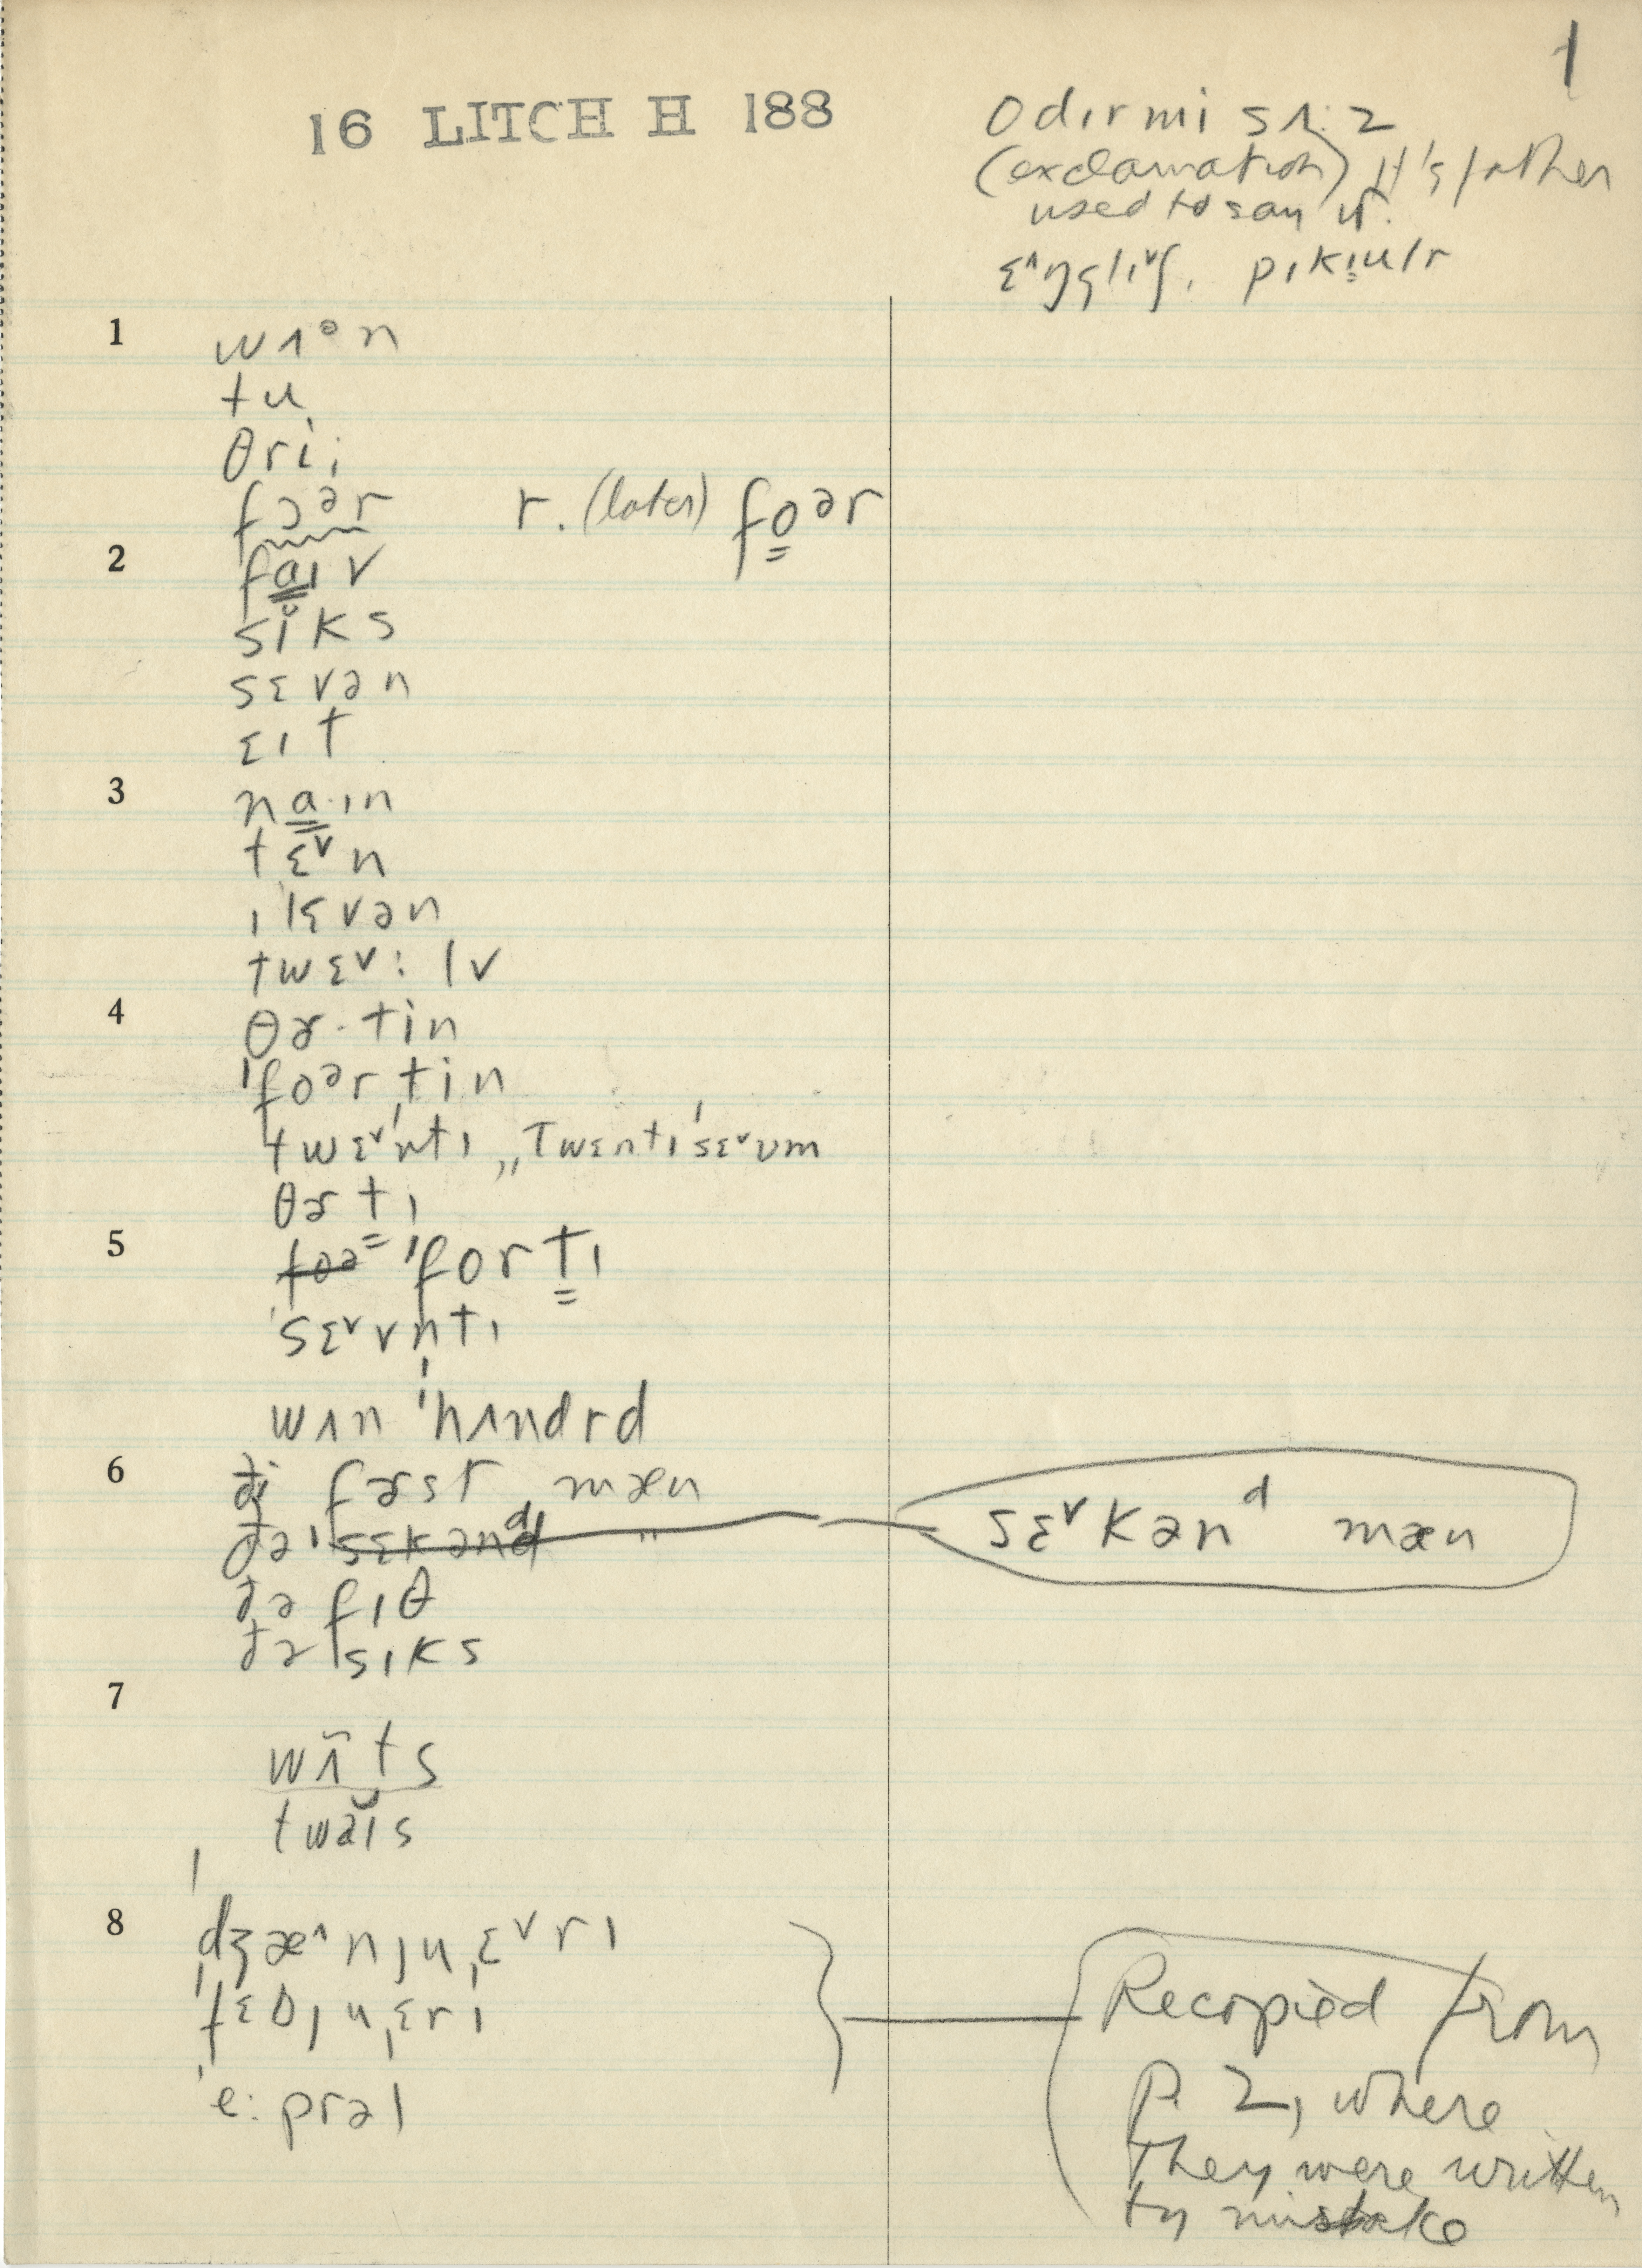 1
16 LITCH H 188
odɪrmi sʌ:z
(exclamation) It's father
used to say it.
ɛ˄ŋglɪ˅ʃ, pɪkjulr
1 wʌᵊn
tu
θrii
fɔər r. (later) foər
2 faɪv
sĭks
sɛvən
ɛɪt
3 na·ɪn
tɛ˅n
ɪ'lɛvən
twɛ˅:lv
4 θɚ·tin
'foərˌtin
twɛ˅ntɪ „Twɛntɪ'sɛ˅vm
θɚtɪ
5 foə 'fortɪ
'sɛ˅vn̩tɪ
wʌn 'hʌndrd
6 ði fɚst mæn
ðə 'sɛkənᵈ " sɛ˅kənᵈ mæn
ðə fɪθ
ðə sɪks
7
wʌ̃ts
twaĭs
8 'dʒæ˄njuˌɛ˅rɪ
'fɛbjuˌɛrɪ
'e:prəl
Recopied from
P. 2, where
they were written
by mistake